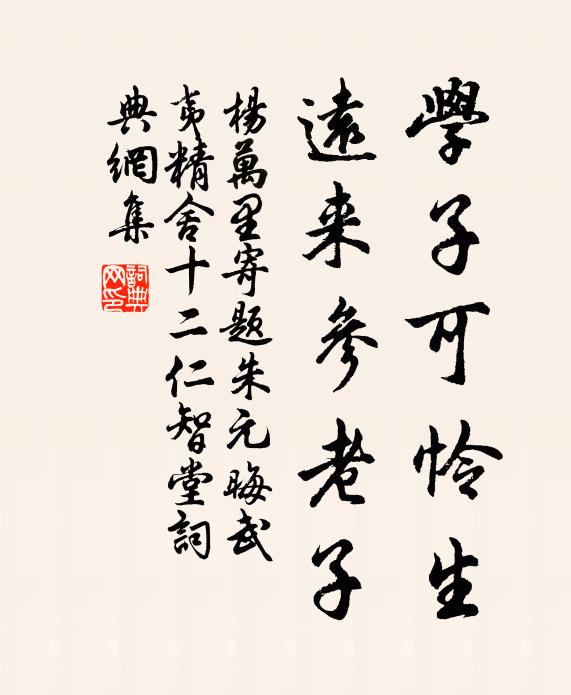 學子可怜生
遠来參老子
楊萬里寄題朱元晦武
夷精舍十二仁智堂詞
典網集
詞典网印